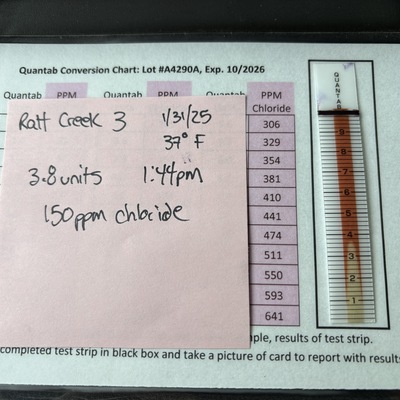 Quantab Conversion Chart: Lot #A4290A, Exp. 10/2026
Quantab PPM Quantab PPM Quantab PPM
Chloride
306
329
354
381
410
441
474
511
550
593
641
Ratt Creek 3 1/31/25
37° F
3.8 units 1:44pm
150 ppm chloride
QUANTAB
9
8
7
6
5
4
3
2
1
ple, results of test strip.
completed test strip in black box and take a picture of card to report with results